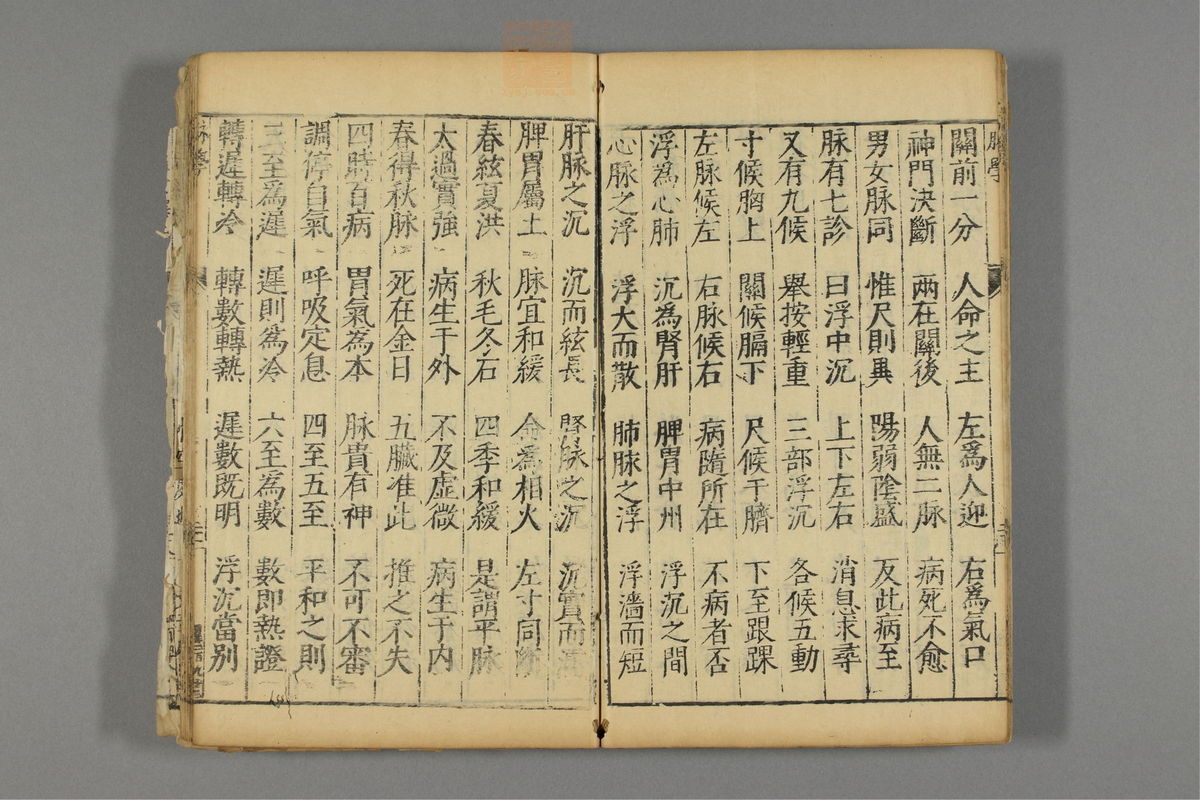 脉學
關前一分 人命之主 左爲人迎 右爲氣口
神門决斷 兩在關後 人無二脉 病死不愈
男女脉同 惟尺則異 陽弱陰盛 反此病至
脉有七診 曰浮中沉 上下左右 消息求尋
又有九候 舉按輕重 三部浮沉 各候五動
寸候胸上 關候膈下 尺候于臍 下至跟踝
左脉候左 右脉候右 病隨所在 不病者否
浮爲心肺 沉爲腎肝 脾胃中州 浮沉之間
心脉之浮 浮大而散 肺脉之浮 浮濇而短
肝脉之沉 沉而絃長 腎脉之沉 沉實而
脾胃屬土 脉宜和緩 命爲相火 左寸同斷
春絃夏洪 秋毛冬石 四季和緩 是謂平脉
太過實強 病生于外 不及虛微 病生于内
春得秋脉 死在金日 五臟准此 推之不失
四時百病 胃氣爲本 脉貴有神 不可不審
調停自氣 呼吸定息 四至五至 平和之則
三至爲遲 遲則爲冷 六至爲數 數即熱證
轉遲轉冷 轉數轉熱 遲數既明 浮沉當别